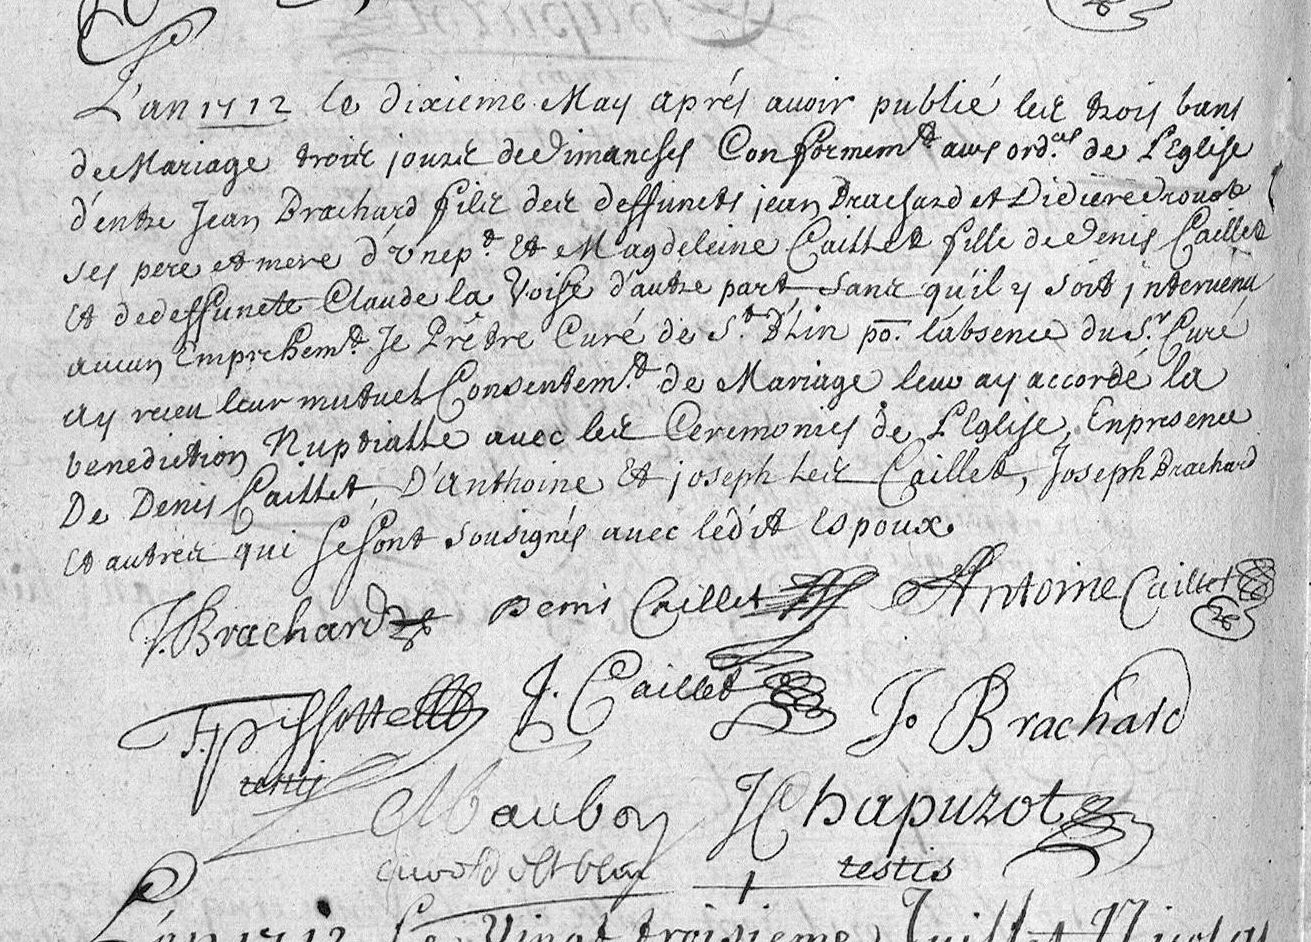 L'an 1712 le dixieme May aprés auoir publié les trois bans
de Mariage trois jours de Dimanches Conformem.t aux ord.ces de L'Eglise
d'entre Jean Brachard fils des deffuncts jean Brachard et Didiere drouot
ses pere et mere d'une p.t Et Magdeleine Caillet fille de Denis Caillet
Et de deffuncte Claude la Voise d'autre part, sans qu'il y soit jntervenu
aucun Empechem.t Je Prêtre Curé de S.t po. l'absence du S.r Curé
ay receu leur mutuel Consentem.t de Mariage leur ay accordé la
benediction Nuptialle avec les Ceremonies de L'Eglise, En presence
De Denis Caillet, D'Anthoine Et joseph les Caillet, Joseph Brachard
Et autres qui se sont sousignés avec ledit Espoux.
J. Brachard Denis Caillet Antoine Caillet
J. Caillet Jo Brachard
testis
Maubon J Chapuzot
testis
L'an 1712 Le Vingt troisieme Juillet Nicolas